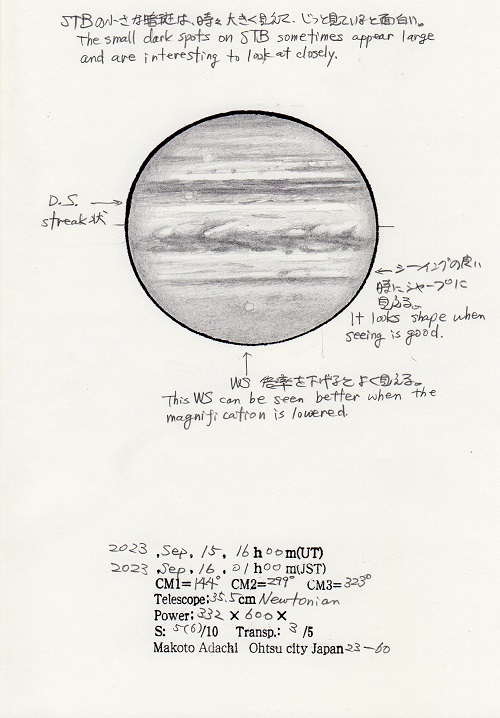 STBの小さな暗斑は、時々大きく見えて、じっと見ていると面白い。
The small dark spots on STB sometimes appear large
and are interesting to look at closely.
D.S.
streak状
シーイングの良い
時にシャープに
見える。
It looks shape when
seeing is good.
WS 倍率を下げるとよく見える。
This WS can be seen better when the
magnification is lowered.
2023 ,Sep, 15, 16 h 00 m(UT)
2023 ,Sep, 16, 01 h 00 m(JST)
CM1=144° CM2=299° CM3=323°
Telescope;35.5cm Newtonian
Power; 332 × 600 ×
S: 5(6)/10 Transp.: 3 /5
Makoto Adachi Ohtsu city Japan 23-60